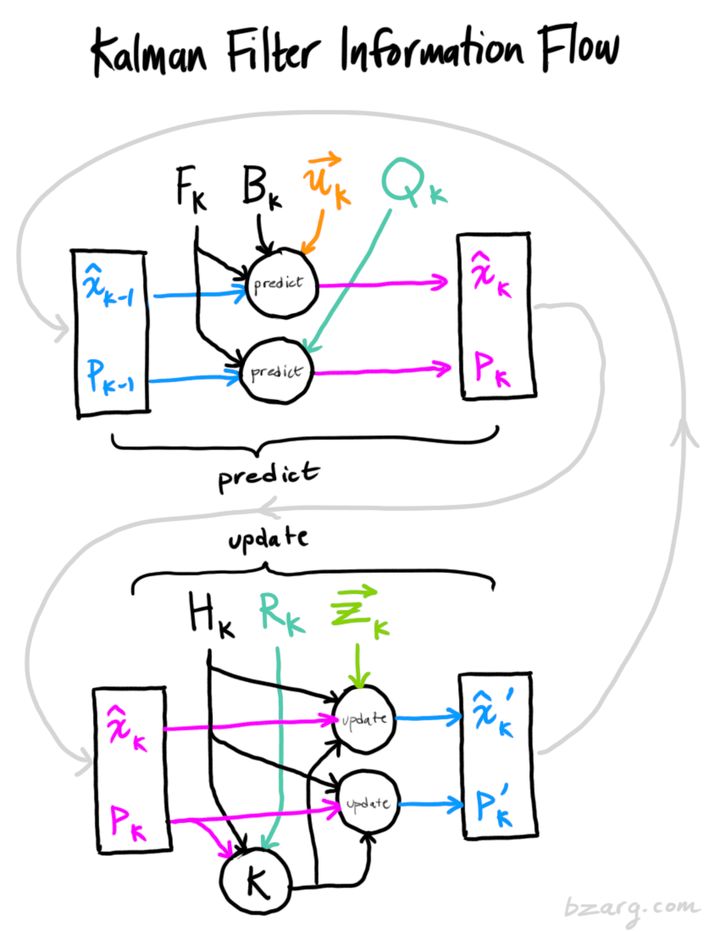 Kalman Filter Information Flow
F_k B_k u⃗_k Q_k
x̂_k-1
P_k-1
predict
predict
x̂_k
P_k
predict
update
H_k R_k z⃗_k
x̂_k
P_k
update
update
K
x̂_k'
P_k'
bzarg.com